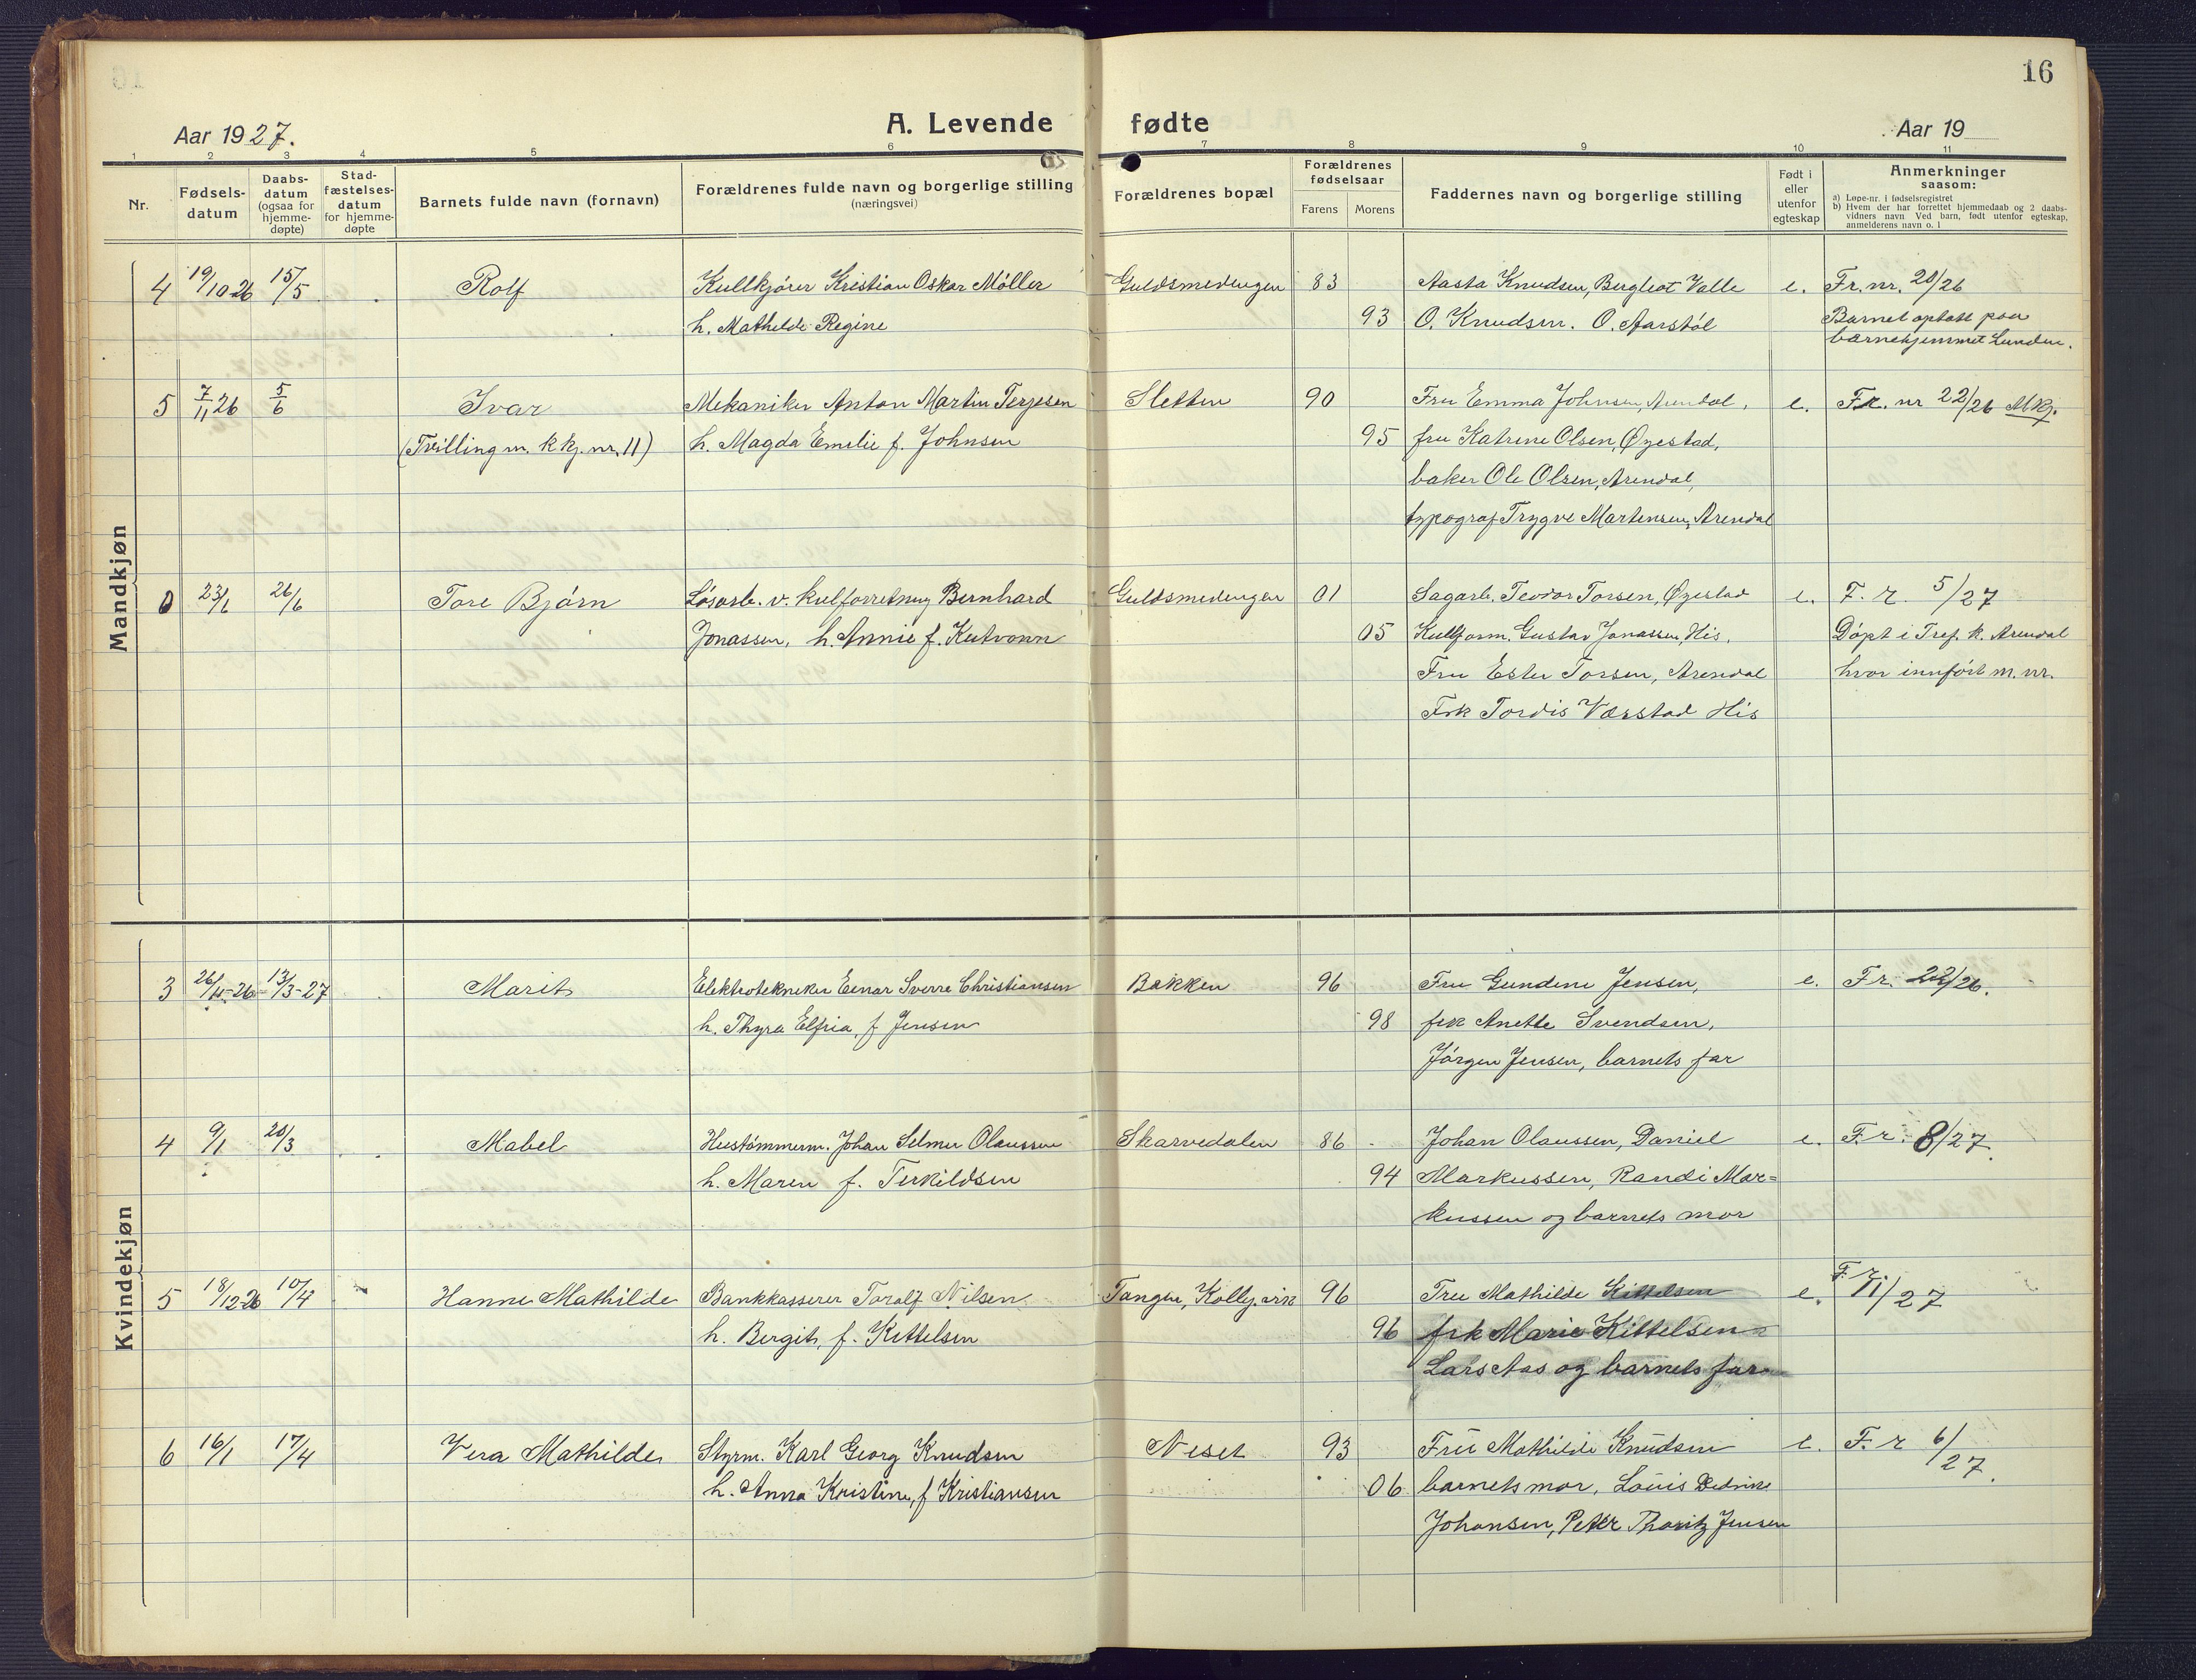 16
Aar 1927.
A. Levende fødte
Aar 19
1 2 3 4 5 6 7 8 9 10 11
Nr.
Fødsels-datum
Daabs-datum (ogsaa for hjemme-døpte)
Stad-fæstelses-datum for hjemme-døpte
Barnets fulde navn (fornavn)
Forældrenes fulde navn og borgerlige stilling
(næringsvei)
Forældrenes bopæl
Forældrenes fødselsaar
Farens Morens
Faddernes navn og borgerlige stilling
Født i eller utenfor egteskap
Anmerkninger
saasom:
a) Løpe-nr. i fødselsregistret
b) Hvem der har forrettet hjemmedaab og 2 daabs-
vidners navn Ved barn, født utenfor egteskap,
anmelderens navn o. l
Mandkjøn
4 19/10-26 15/5 Rolf Kullkjører Kristian Oskar Møller Guldsmedengen 83 Aasta Knudsen, Bergliot Valle e. Fr. nr. 20/26
h. Mathilde Regine 93 O. Knudsen. O. Aarstøl Barnet optatt paa
barnehjemmet Lunden.
5 7/11 26 5/6 Ivar Mekaniker Anton Martin Terjesen Sletten 90 Fru Emma Johnsen, Arendal, e. Fr. nr 22/26 Mkj.
(Tvilling m. kkj. nr. 11) h. Magda Emelie f. Johnsen 95 fru Katrine Olsen, Øyestad,
baker Ole Olsen, Arendal,
typograf Trygve Martensen, Arendal
23/1 26/6 Tore Bjørn Løsarb. v. kulforretning Bernhard Guldsmedengen 01 Sagarb. Teodor Torsen, Øyestad e. F. r. 5/27
Jonassen, h. Annie f. 05 Kullform. Gustav Jonassen, His, Døpt i Tref. k. Arendal
Fru Ester Torsen, Arendal hvor innført m. nr.
Frk Tordis Værstad His
Kvindekjøn
3 26/11-26 13/3-27 Marit Elektrotekniker Einar Sverre Christiansen Bakken 96 Fru Gundine Jensen, e. Fr. 22/26.
h. Thyra Elfria, f Jensen 98 frk Anette Svendsen,
Jørgen Jensen, barnets far
4 9/1 20/3 Mabel Hustømmerm. Johan Selmer Olaussen Skarvedalen 86 Johan Olaussen, Daniel e. F. r. 8/27.
h. Maren f. Terkildsen 94 Markussen, Randi Mar=
kussen og barnets mor
5 18/12-26 10/4 Hanne Mathilde Bankkasserer Toralf Nilsen Tangen, Kolbj.vik 96 Fru Mathilde Kittelsen e. F. r. 11/27
h. Bergit, f. Kittelsen 96 frk Marie Kittelsen
Lars Aas og barnets far
6 16/1 17/4 Vera Mathilde Styrm. Karl Georg Knudsen Neset 93 Fru Mathilde Knudsen e. F. r 6/27.
h. Anna Kristine, f Kristiansen 06 barnets mor, Louis Dedrik
Johansen, Peter Thoritz Jensen